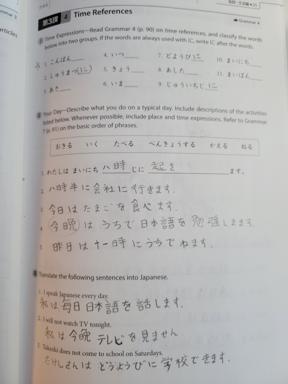 第3課 4 Time References
Grammar 4
Time Expressions—Read Grammar 4 (p. 90) on time references, and classify the words
below into two groups. If the words are always used with に, write に after the words.
1. こんばん 4. いつ 7. どようび に 10. まいにち
2. しゅうまつ(に) 5. きょう 8. あした 11. まいばん
3. あさ 6. いま 9. じゅういちじ に
Your Day—Describe what you do on a typical day. Include descriptions of the activities
listed below. Whenever possible, include place and time expressions. Refer to Grammar
(p. 91) on the basic order of phrases.
おきる いく たべる べんきょうする かえる ねる
1. わたしは まいにち 八時 じに 起き ます。
2. 八時半に会社に行きます。
3. 今日はたまごを食べます。
今晩はうちで日本語を勉強します。
昨日は十一時にうちでねます。
Translate the following sentences into Japanese.
1. I speak Japanese every day.
私は毎日日本語を話します。
2. I will not watch TV tonight.
私は今晩テレビを見ません
3. Takeshi does not come to school on Saturdays.
たけしさんはどうようびに学校できます。